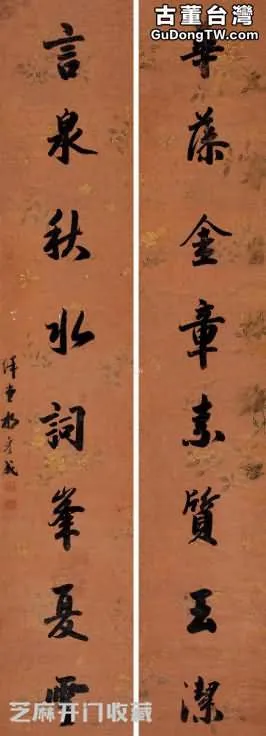 古董台灣
GuDongTW.com
華藻金章素質玉潔
言泉秋水詞峯夏雲
芝麻开门收藏